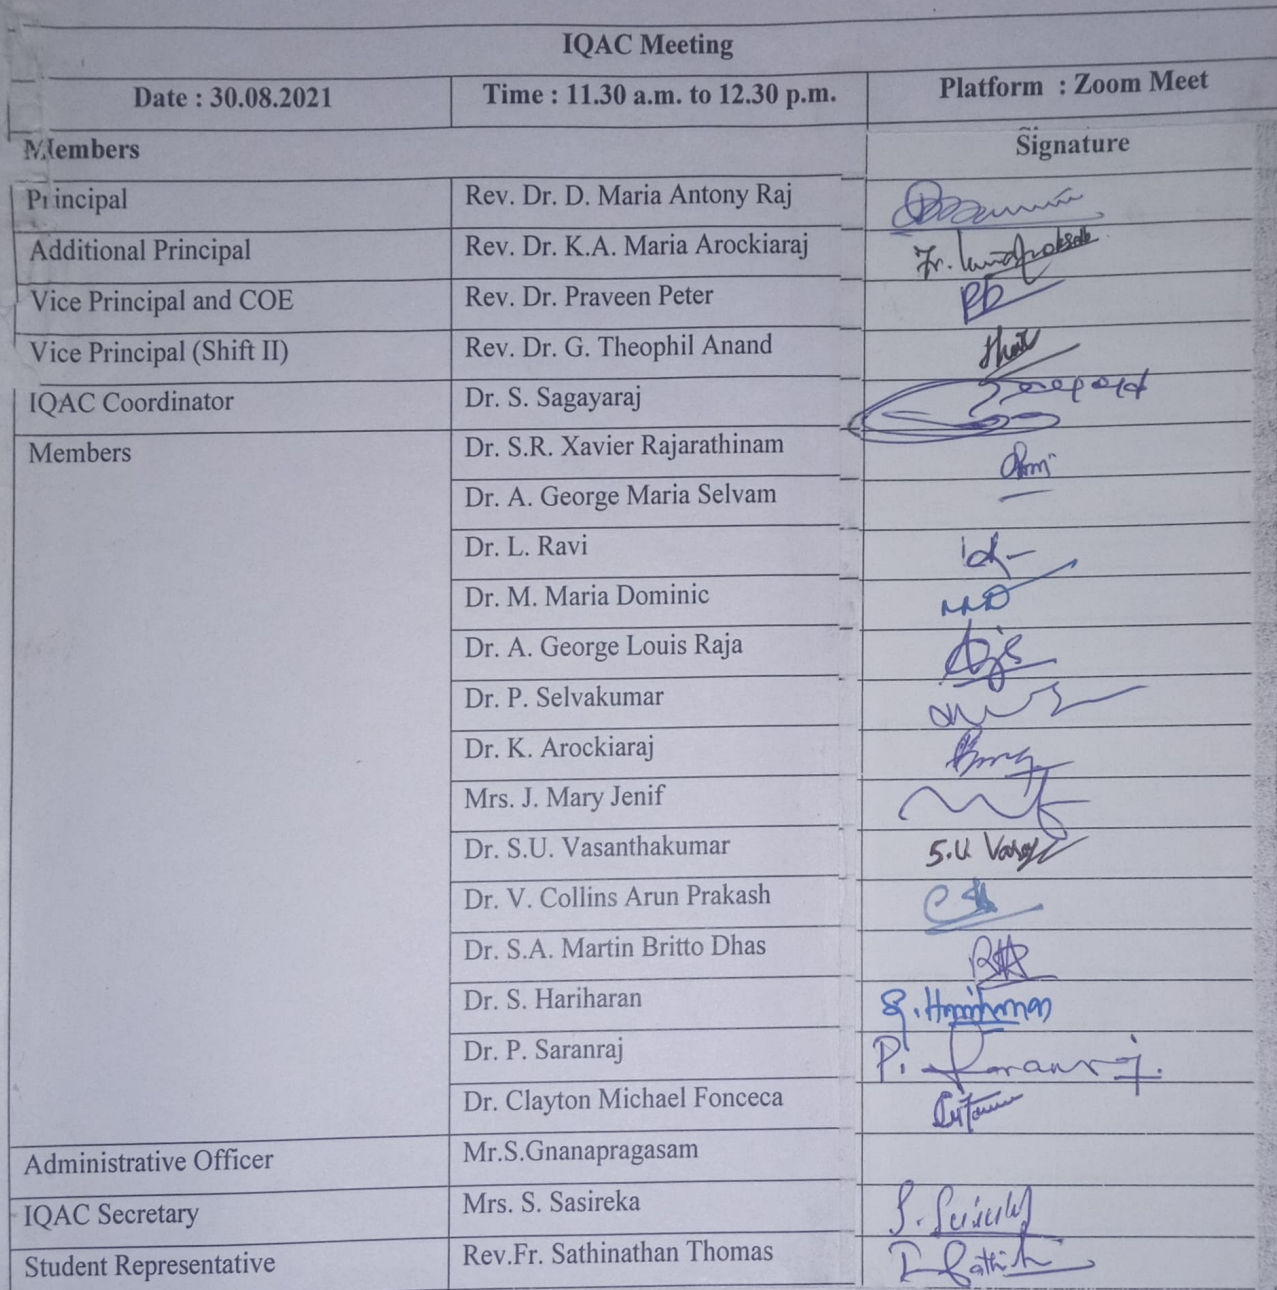 IQAC Meeting
Date : 30.08.2021 Time : 11.30 a.m. to 12.30 p.m. Platform : Zoom Meet
Members Signature
Principal Rev. Dr. D. Maria Antony Raj
Additional Principal Rev. Dr. K.A. Maria Arockiaraj Fr.
Vice Principal and COE Rev. Dr. Praveen Peter
Vice Principal (Shift II) Rev. Dr. G. Theophil Anand
IQAC Coordinator Dr. S. Sagayaraj
Members Dr. S.R. Xavier Rajarathinam
Dr. A. George Maria Selvam
Dr. L. Ravi
Dr. M. Maria Dominic
Dr. A. George Louis Raja
Dr. P. Selvakumar
Dr. K. Arockiaraj
Mrs. J. Mary Jenif
Dr. S.U. Vasanthakumar S.U.
Dr. V. Collins Arun Prakash
Dr. S.A. Martin Britto Dhas
Dr. S. Hariharan S. Hariharan
Dr. P. Saranraj P. Saranraj.
Dr. Clayton Michael Fonceca
Administrative Officer Mr.S.Gnanapragasam
IQAC Secretary Mrs. S. Sasireka
Student Representative Rev.Fr. Sathinathan Thomas